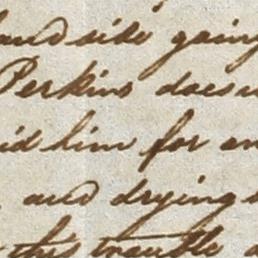 and side going
Perkins does
him for
and drying
this trouble